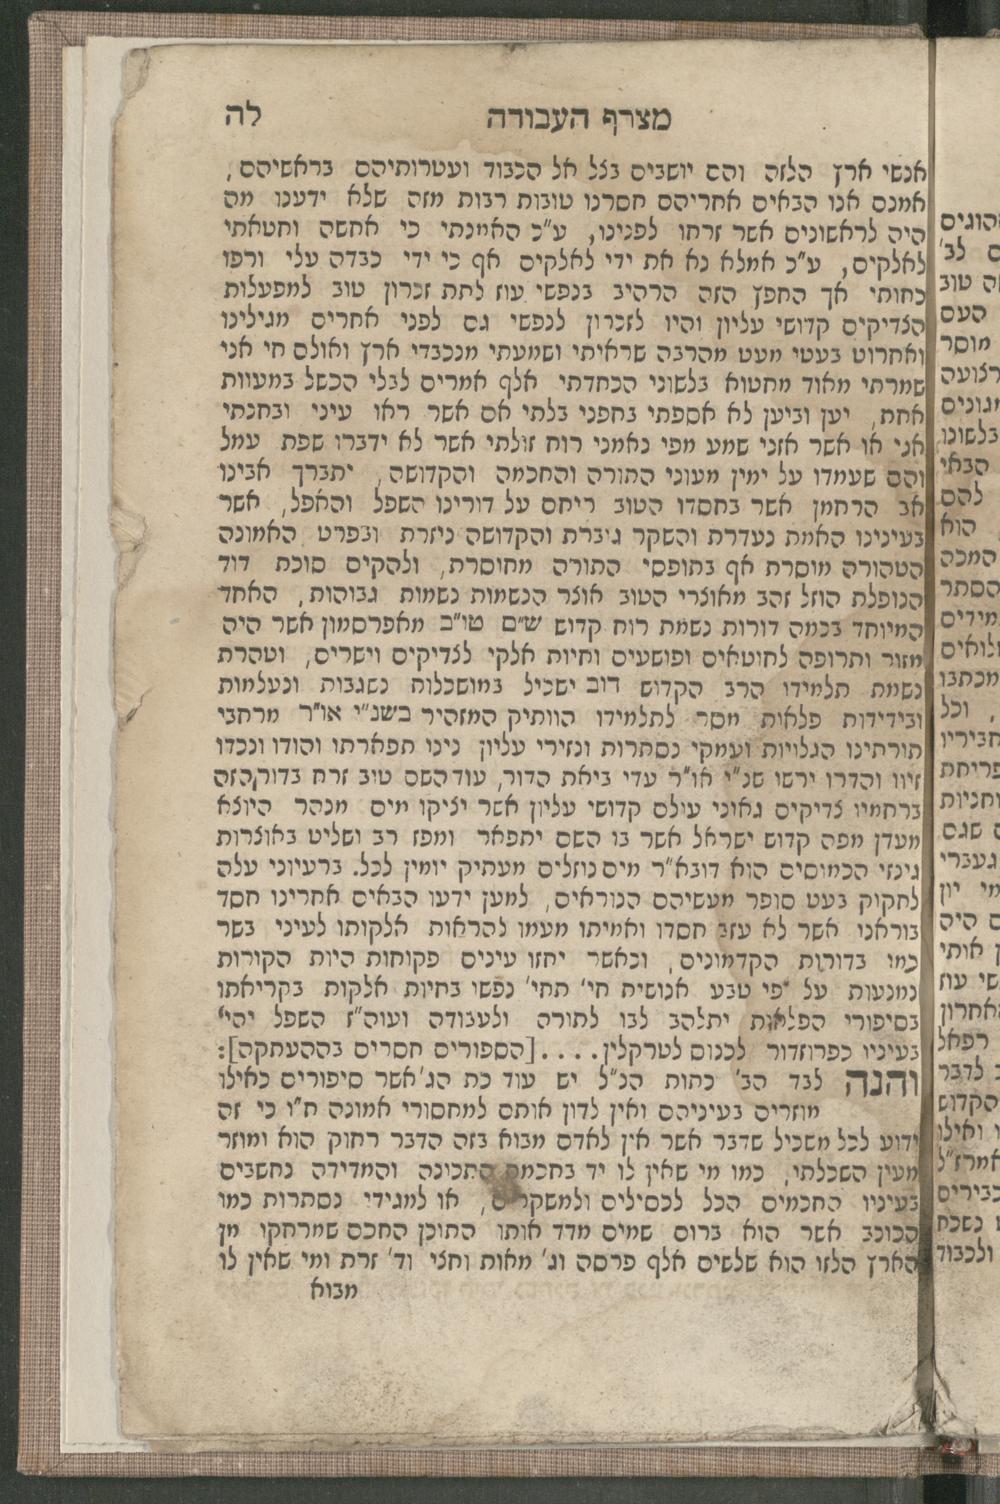 מצרף העבודה לה
אנשי ארץ הלזה והם יושבים בצל אל הכבוד ועטרותיהם בראשיהם,
אמנם אנו הבאים אחריהם חסרנו טובות רבות מזה שלא ידענו מה
היה לראשונים אשר זרחו לפנינו, ע"כ האמנתי כי אחשה וחטאתי
לאלקים, ע"כ אמלא נא את ידי לאלקים אף כי ידי כבדה עלי ורפו
כחותי אך החפץ הזה הרהיב בנפשי עוז לתת זכרון טוב למפעלות
הצדיקים קדושי עליון והיו לזכרון לנפשי גם לפני אחרים מגילינו
ואחרוט בעטי מעט מהרבה שראיתי ושמעתי מנכבדי ארץ ואולם חי אני
שמרתי מאוד מחטוא בלשוני הכחדתי אלף אמרים לבלי הכשל במעוות
אחת, יען וביען לא אספתי בחפני בלתי אם אשר ראו עיני ובחנתי
אני או אשר אזני שמע מפי נאמני רוח זולתי אשר לא ידברו שפת עמל
והם שעמדו על ימין מעוני התורה והחכמה והקדושה, יתברך אבינו
אב הרחמן אשר בחסדו הטוב ריחם על דורינו השפל והאפל, אשר
בעינינו האמת נעדרת והשקר גוברת והקדושה ניזרת ובפרט האמונה
הטהורה מוסרת אף בתופסי התורה מחוסרת, ולהקים סוכת דוד
הנופלת הוזל זהב מאוצרי הטוב אוצר הנשמות נשמות גבוהות, האחד
המיוחד בכמה דורות נשמת רוח קדוש ש"ם טו"ב מאפרסמון אשר היה
מזור ותרופה לחוטאים ופושעים וחיות אלקי לצדיקים וישרים, וטהרת
נשמת תלמידו הרב הקדוש דוב ישכיל במושכלות נשגבות ונעלמות
ובידידות פלאות מסר לתלמידו הוותיק המזהיר בשנ"י או"ר מרחבי
תורתינו הגלויות ועמקי נסתרות ונזירי עליון נינו תפארתו והודו ונכדו
זיוו והדרו ירשו שנ"י או"ר עדי ביאת הדור, עוד השם טוב זרח בדור הזה
ברחמיו צדיקים גאוני עולם קדושי עליון אשר יניקו מים מנהר היוצא
מעדן מפה קדוש ישראל אשר בו השם יתפאר ומפז רב ושליט באוצרות
גינזי הכמוסים הוא דובא"ר מים נוזלים מעתיק יומין לכל. ברעיוני עלה
לחקוק בעט סופר מעשיהם הנוראים, למען ידעו הבאים אחרינו חסד
בוראנו אשר לא עזב חסדו ואמיתו מעמו להראות אלקותו לעיני בשר
כמו בדורות הקדמונים, וכאשר יחזו עינים פקוחות היות הקורות
נמנעות על פי טבע אנושית חי' תחי' נפשו בחיות אלקות בקריאתו
בסיפורי הפלאות יתלהב לבו לתורה ולעבודה ועוה"ז השפל יהי'
בעיניו כפרוזדור לכנוס לטרקלין....[הספורים חסרים בההעתקה]:
והנה לבד הב' כתות הנ"ל יש עוד כת הג' אשר סיפורים כאילו
מוזרים בעיניהם ואין לדון אותם למחסורי אמונה ח"ו כי זה
ידוע לכל משכיל שדבר אשר אין לאדם מבוא בזה הדבר רחוק הוא ומוזר
מעין השכלתי, כמו מי שאין לו יד בחכמת התכונה והמדידה נחשבים
בעיניו החכמים הכל לכסילים ולמשקרים, או למגידי נסתרות כמו
הכוכב אשר הוא ברום שמים מדד אותו התוכן החכם שמרחקו מן
הארץ הלזו הוא שלשים אלף פרסה וג' מאות וחצי וד' זרת ומי שאין לו
מבוא